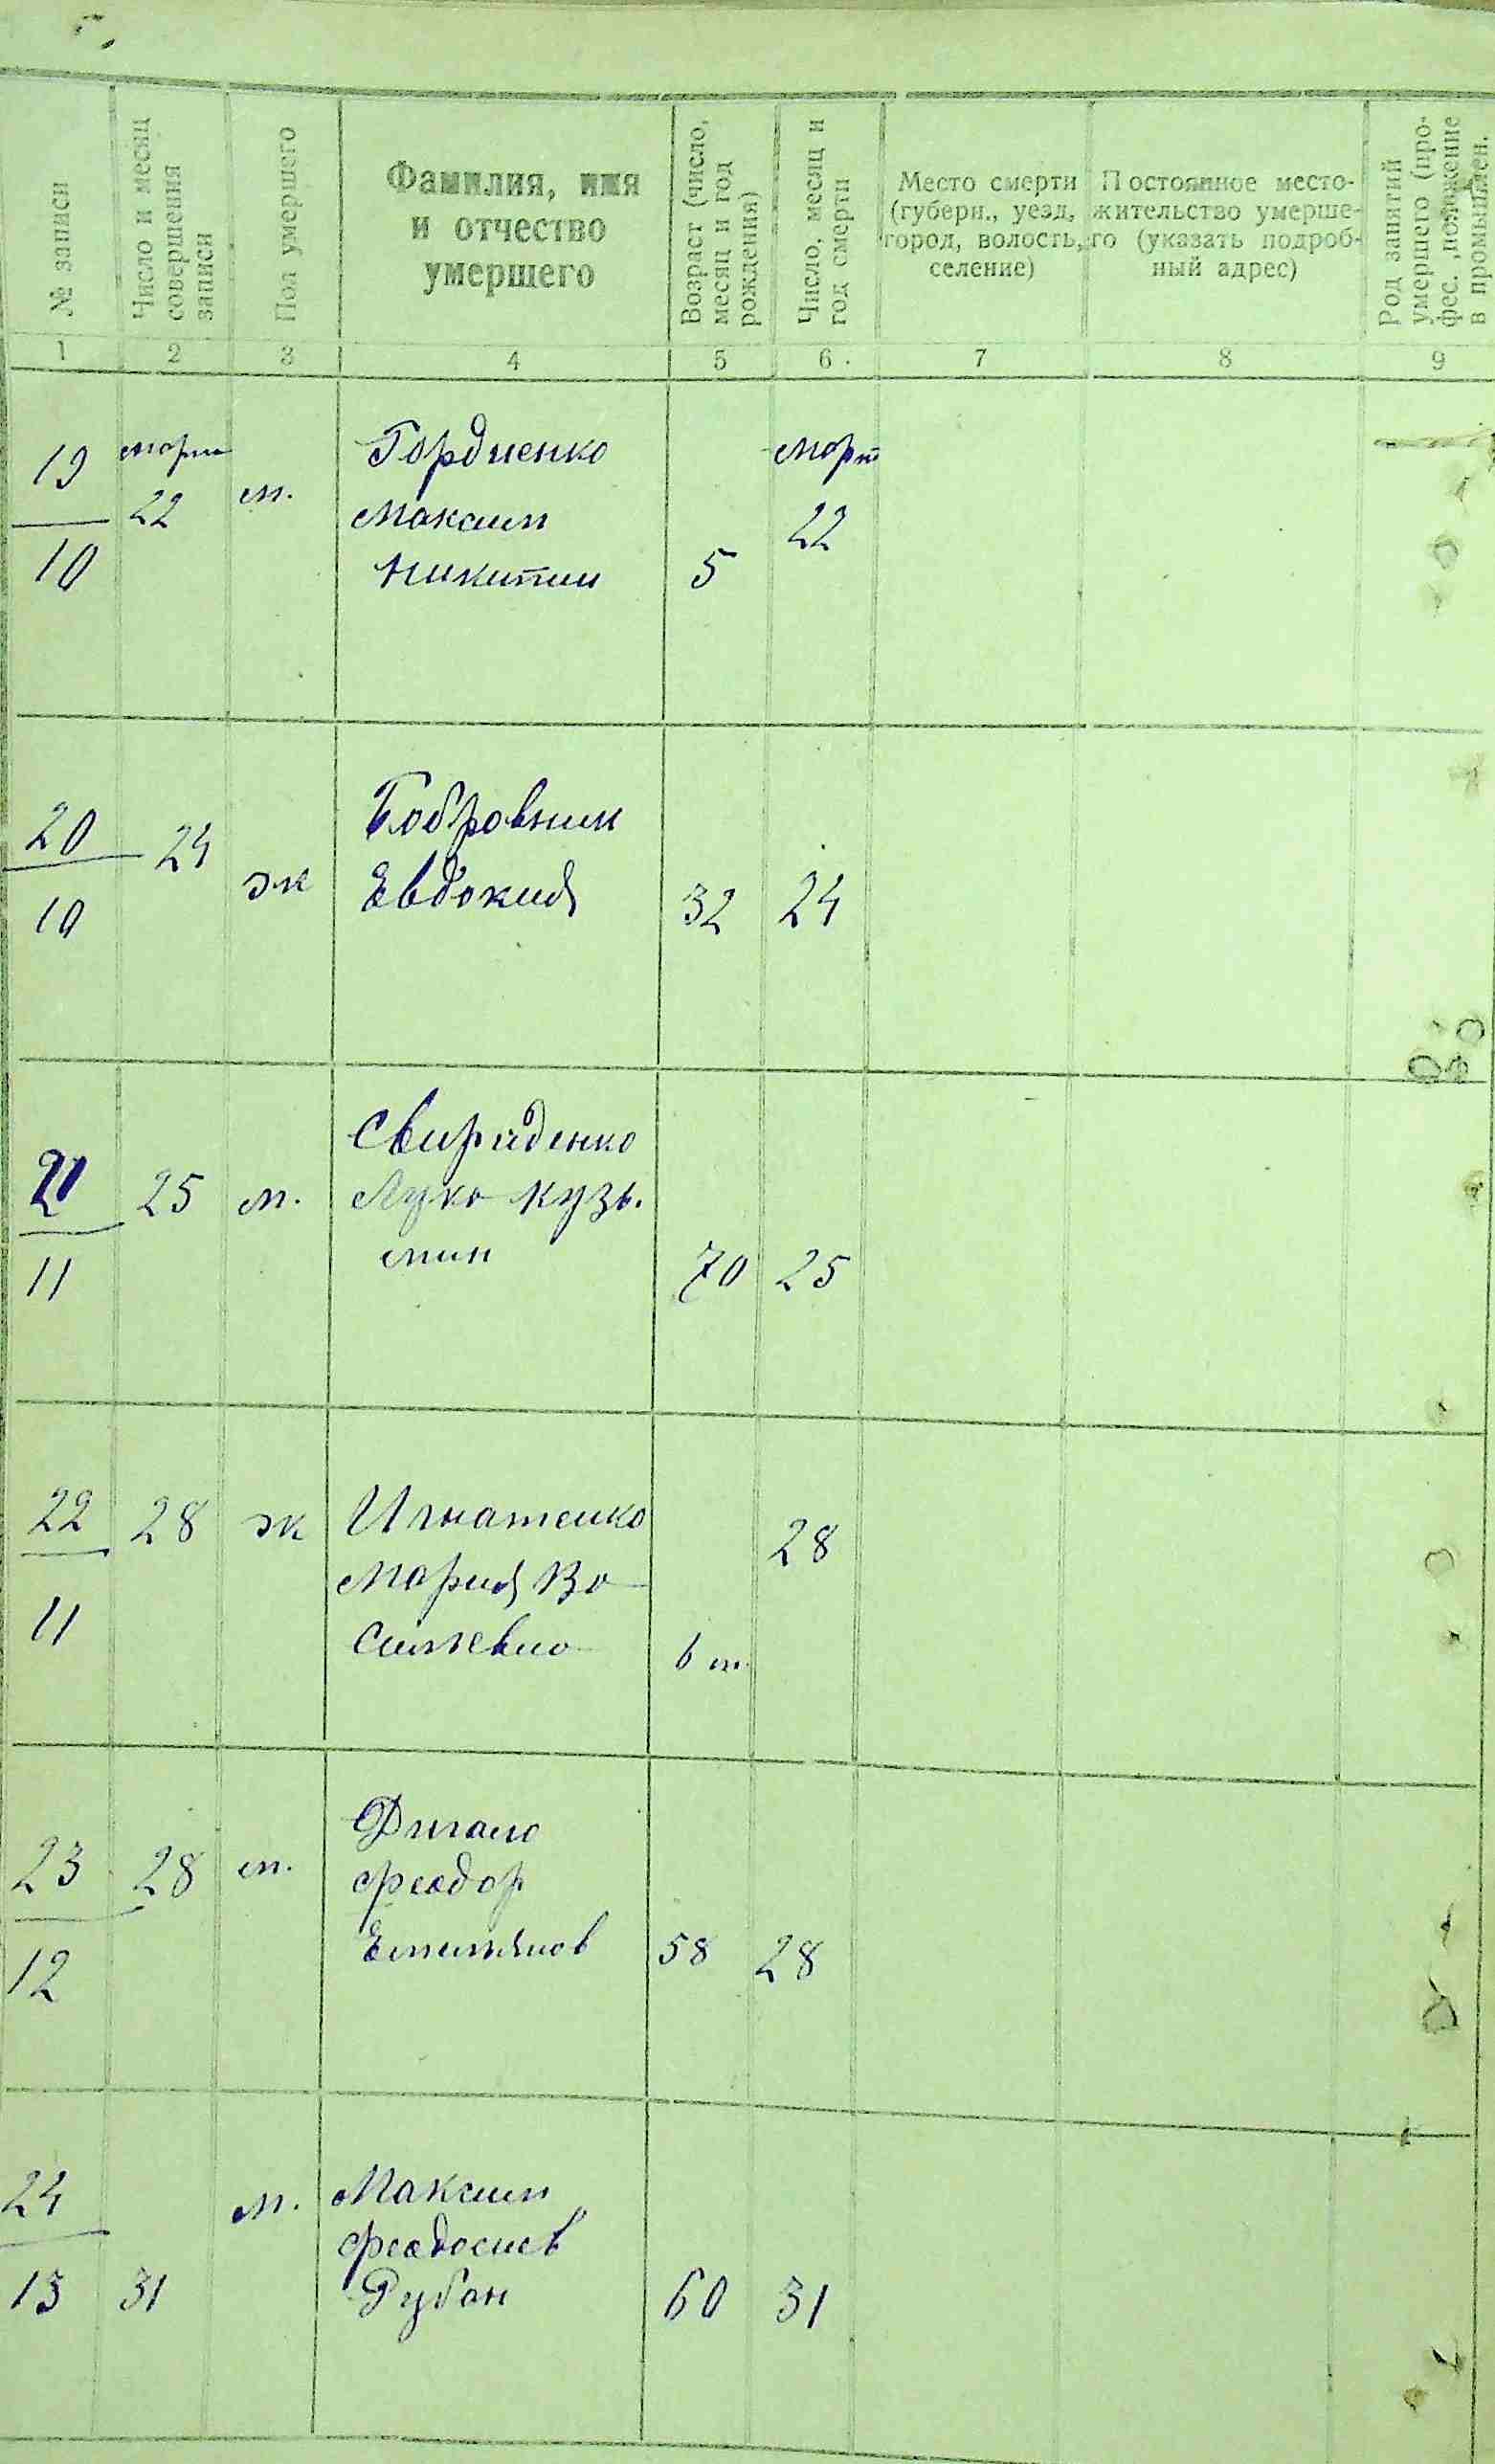 № записи
Число и месяц
совершения
записи
Пол умершего
Фамилия, имя
и отчество
умершего
Возраст (число,
месяц и год
рождения)
Число, месяц и
год смерти
Место смерти
(губерн., уезд,
город, волость,
селение)
Постоянное место-
жительство умерше-
го (указать подроб-
ный адрес)
Род занятий
умершего (про-
фес., положение
в промышлен.
1 2 3 4 5 6. 7 8 9
19 март м. Гордиенко март
22 Максим 22
10 Никитин 5
20 24 Бобровник
ж Евдокия 32 24
10
21 25 м. Свириденко
Лука Кузь-
мин 70 25
11
22 28 ж Игнатенко 28
Мария Ва-
11 сильевна 6 м.
23 28 м.
Феодор
12 Емельянов 58 28
24 м. Максим
Феодосиев
13 31 Рубан 60 31